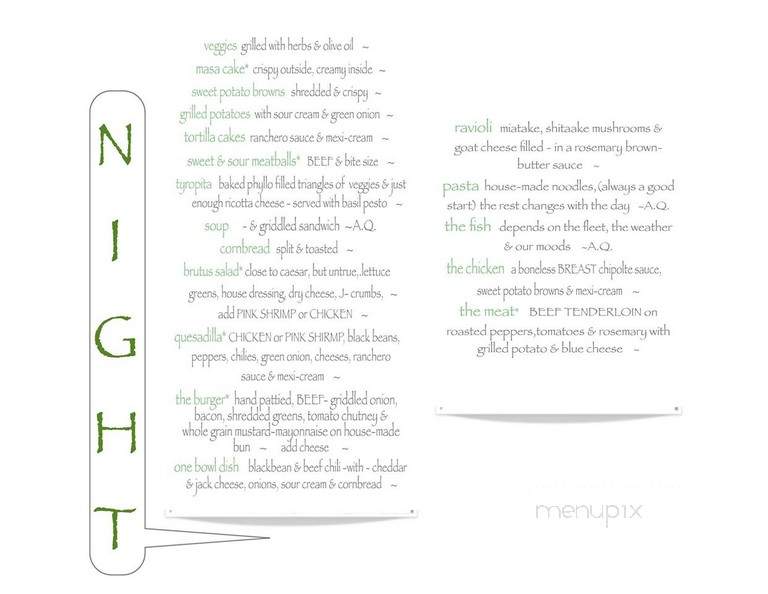 NIGHT
veggies grilled with herbs & olive oil ~
masa cake* crispy outside, creamy inside ~
sweet potato browns shredded & crispy ~
grilled potatoes with sour cream & green onion ~
tortilla cakes ranchero sauce & mexi-cream ~
sweet & sour meatballs* BEEF & bite size ~
tyropita baked phyllo filled triangles of veggies & just
enough ricotta cheese - served with basil pesto ~
soup - & griddled sandwich ~A.Q.
cornbread split & toasted ~
brutus salad* close to caesar, but untrue,.lettuce
greens, house dressing, dry cheese, J- crumbs, ~
add PINK SHRIMP or CHICKEN ~
quesadilla* CHICKEN or PINK SHIRMP, black beans,
peppers, chilies, green onion, cheeses, ranchero
sauce & mexi-cream ~
the burger* hand pattied, BEEF- griddled onion,
bacon, shredded greens, tomato chutney &
whole grain mustard-mayonnaise on house-made
bun ~ add cheese ~
one bowl dish blackbean & beef chili -with - cheddar
& jack cheese, onions, sour cream & cornbread ~
ravioli miatake, shitaake mushrooms &
goat cheese filled - in a rosemary brown-
butter sauce ~
pasta house-made noodles,(always a good
start) the rest changes with the day ~A.Q.
the fish depends on the fleet, the weather
& our moods ~A.Q.
the chicken a boneless BREAST chipolte sauce,
sweet potato browns & mexi-cream ~
the meat* BEEF TENDERLOIN on
roasted peppers,tomatoes & rosemary with
grilled potato & blue cheese ~
menupix